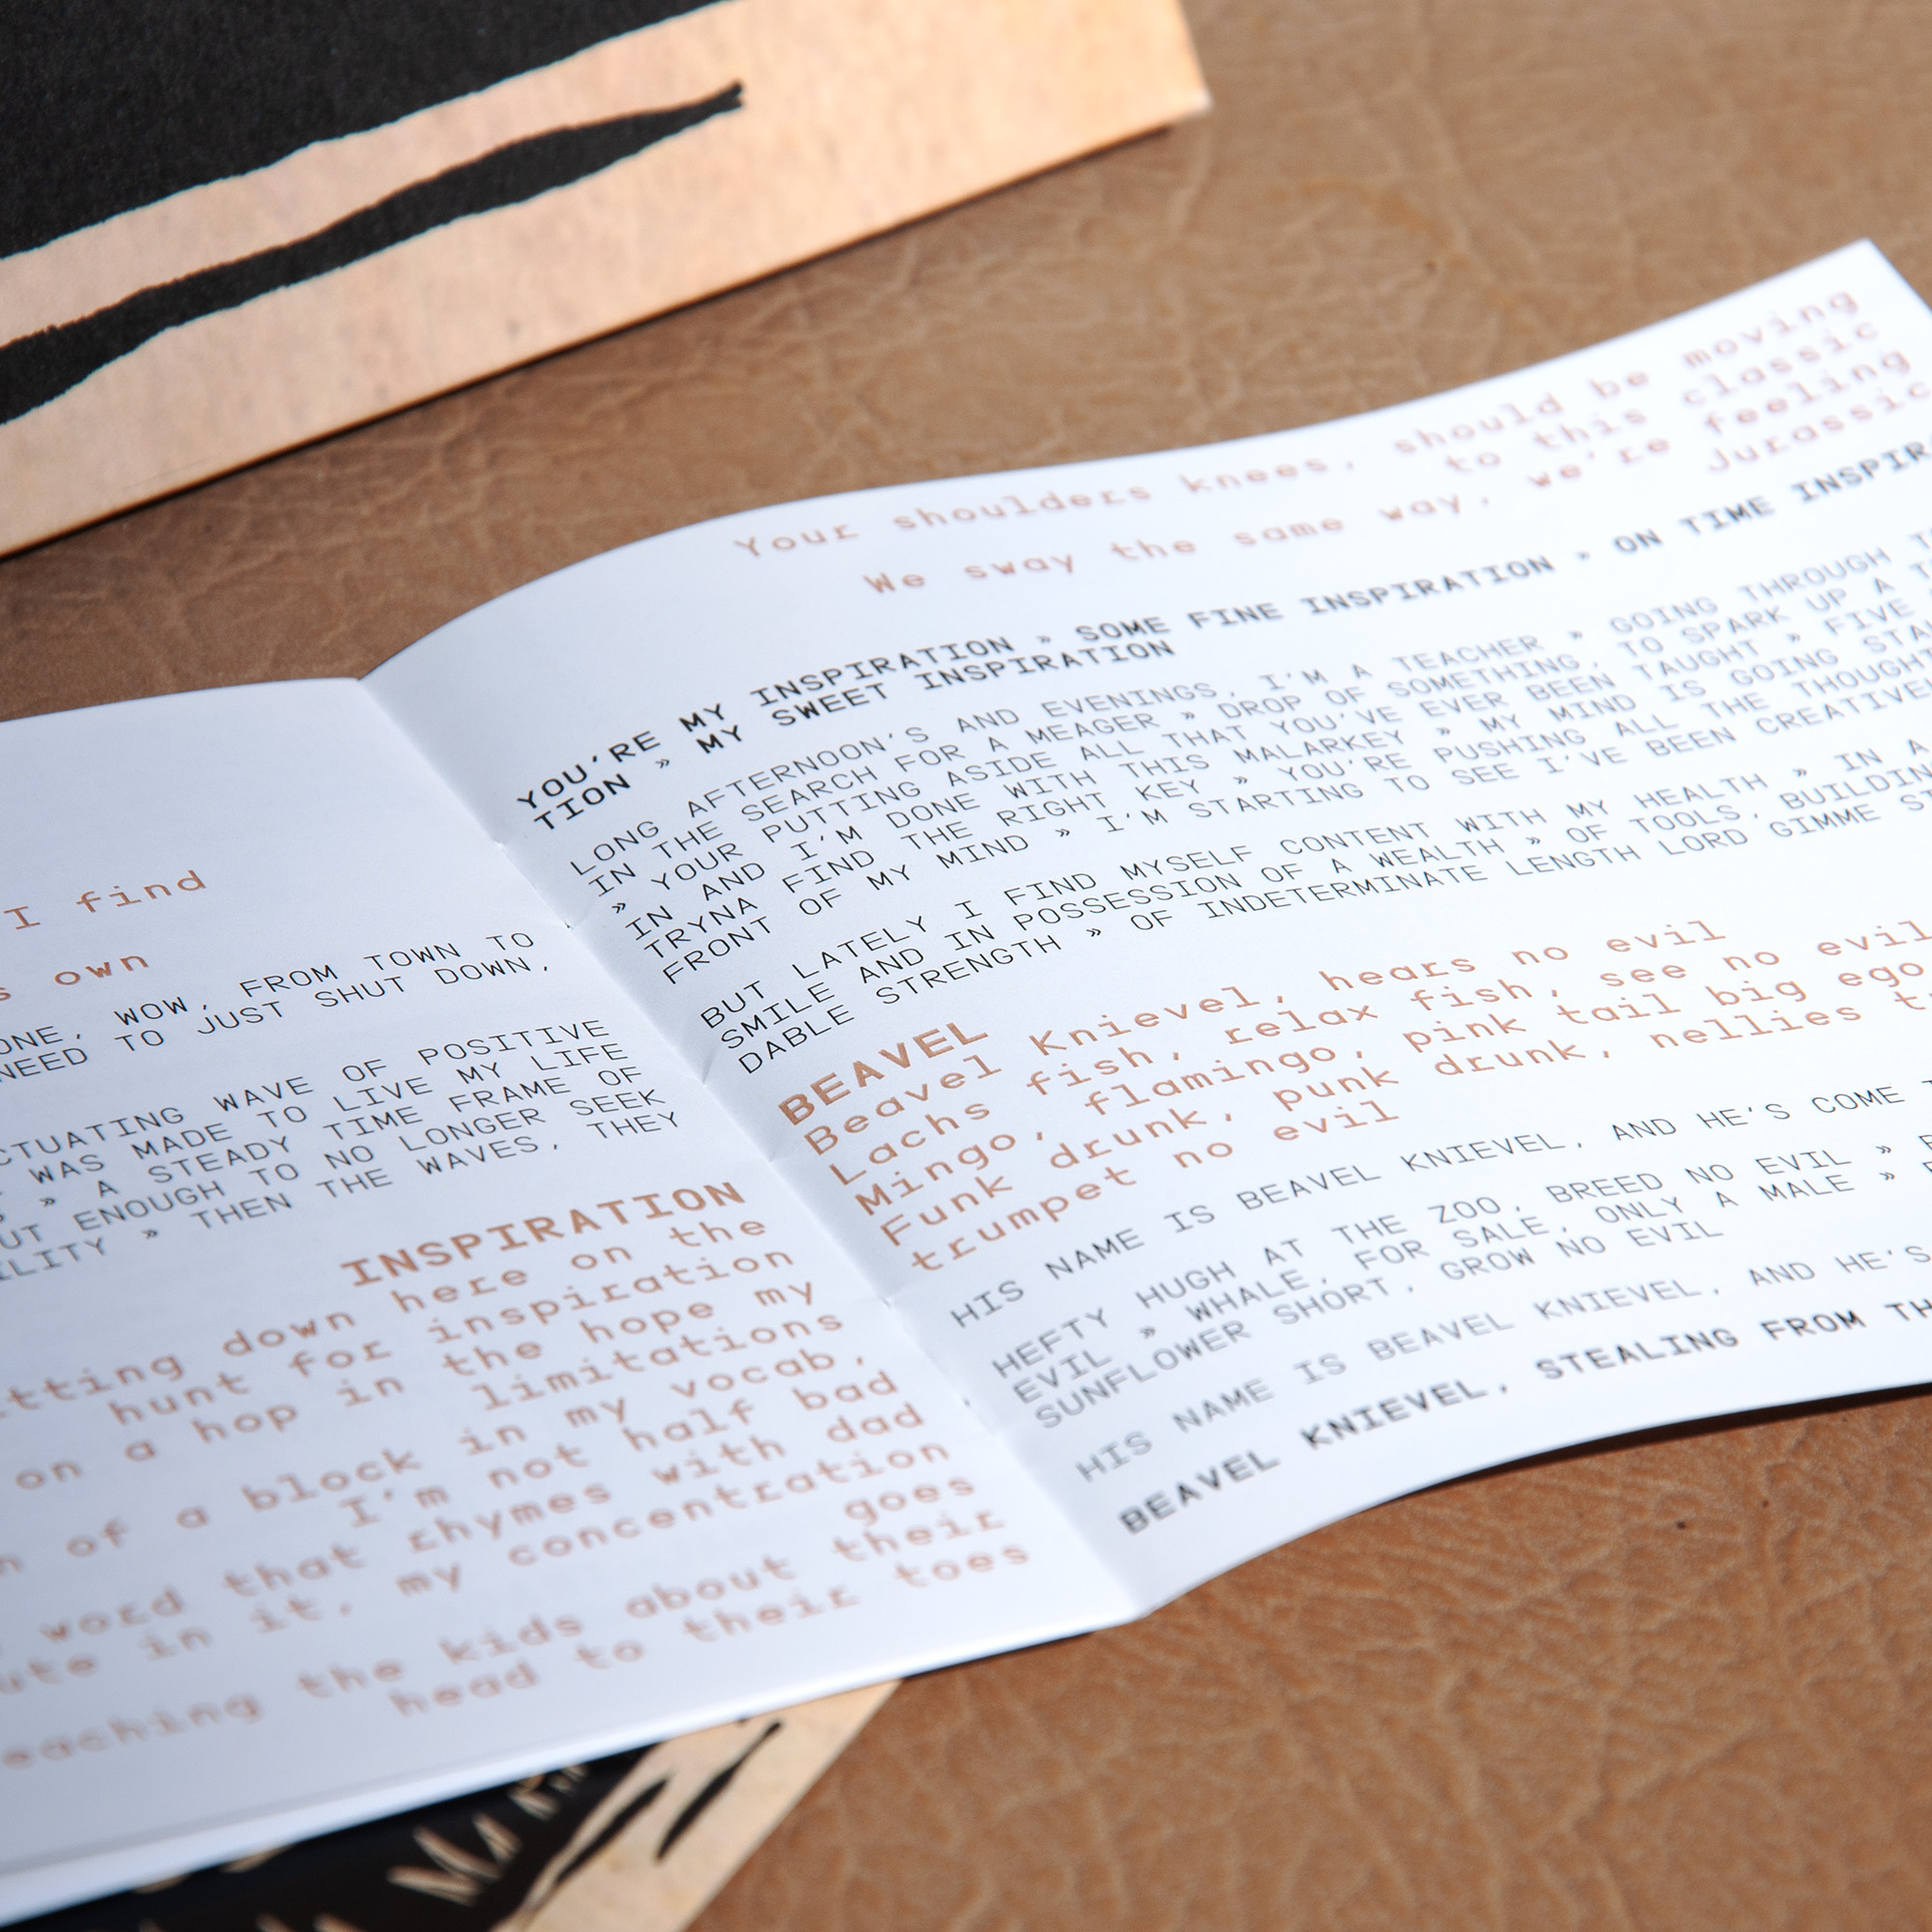 I find
own
ONE, WOW, FROM TOWN TO
NEED TO JUST SHUT DOWN,
WAVE OF POSITIVE
WAS MADE TO LIVE MY LIFE
» A STEADY TIME FRAME OF
ENOUGH TO NO LONGER SEEK
» THEN THE WAVES, THEY
INSPIRATION
down here on the
hunt for inspiration
on a hop in the hope my
limitations
of a block in my vocab,
I'm not half bad
word that rhymes with dad
in it, my concentration
goes
the kids about their
head to their toes
Your shoulders knees, should be moving
to this classic
We sway the same way, we're feeling
Jurassic
YOU'RE MY INSPIRATION » SOME FINE INSPIRATION » ON TIME INSPIR
TION » MY SWEET INSPIRATION
LONG AFTERNOON'S AND EVENINGS, I'M A TEACHER » GOING THROUGH
IN THE SEARCH FOR A MEAGER » DROP OF SOMETHING, TO SPARK UP A
» YOUR PUTTING ASIDE ALL THAT YOU'VE EVER BEEN TAUGHT » FIVE
IN AND I'M DONE WITH THIS MALARKEY » MY MIND IS GOING
TRYNA FIND THE RIGHT KEY » YOU'RE PUSHING ALL THE THOUGHT
FRONT OF MY MIND » I'M STARTING TO SEE I'VE BEEN CREATIVE
BUT LATELY I FIND MYSELF CONTENT WITH MY HEALTH » IN A
SMILE AND IN POSSESSION OF A WEALTH » OF TOOLS, BUILDIN
DABLE STRENGTH » OF INDETERMINATE LENGTH LORD GIMME
BEAVEL
Beavel Knievel, hears no evil
Lachs fish, relax fish, see no evil
Mingo, flamingo, pink tail big ego
Funk drunk, punk drunk, nellies
trumpet no evil
HIS NAME IS BEAVEL KNIEVEL, AND HE'S COME
HEFTY HUGH AT THE ZOO, BREED NO EVIL »
EVIL » WHALE, FOR SALE, ONLY A MALE »
SUNFLOWER SHORT, GROW NO EVIL
HIS NAME IS BEAVEL KNIEVEL, AND HE'S
BEAVEL KNIEVEL, STEALING FROM TH